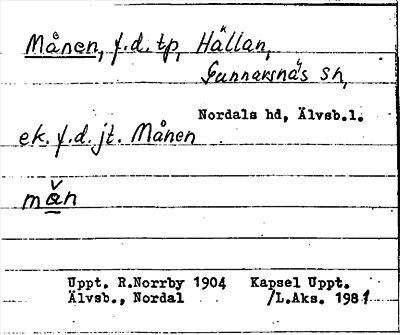 Månen, f.d. tp, Hällan,
Gunnarsnäs sn,
Nordals hd, Älvsb.l.
ek. f.d. jt. Månen
mån
Uppt. R.Norrby 1904 Kapsel Uppt.
Älvsb., Nordal /L.Aks. 1981